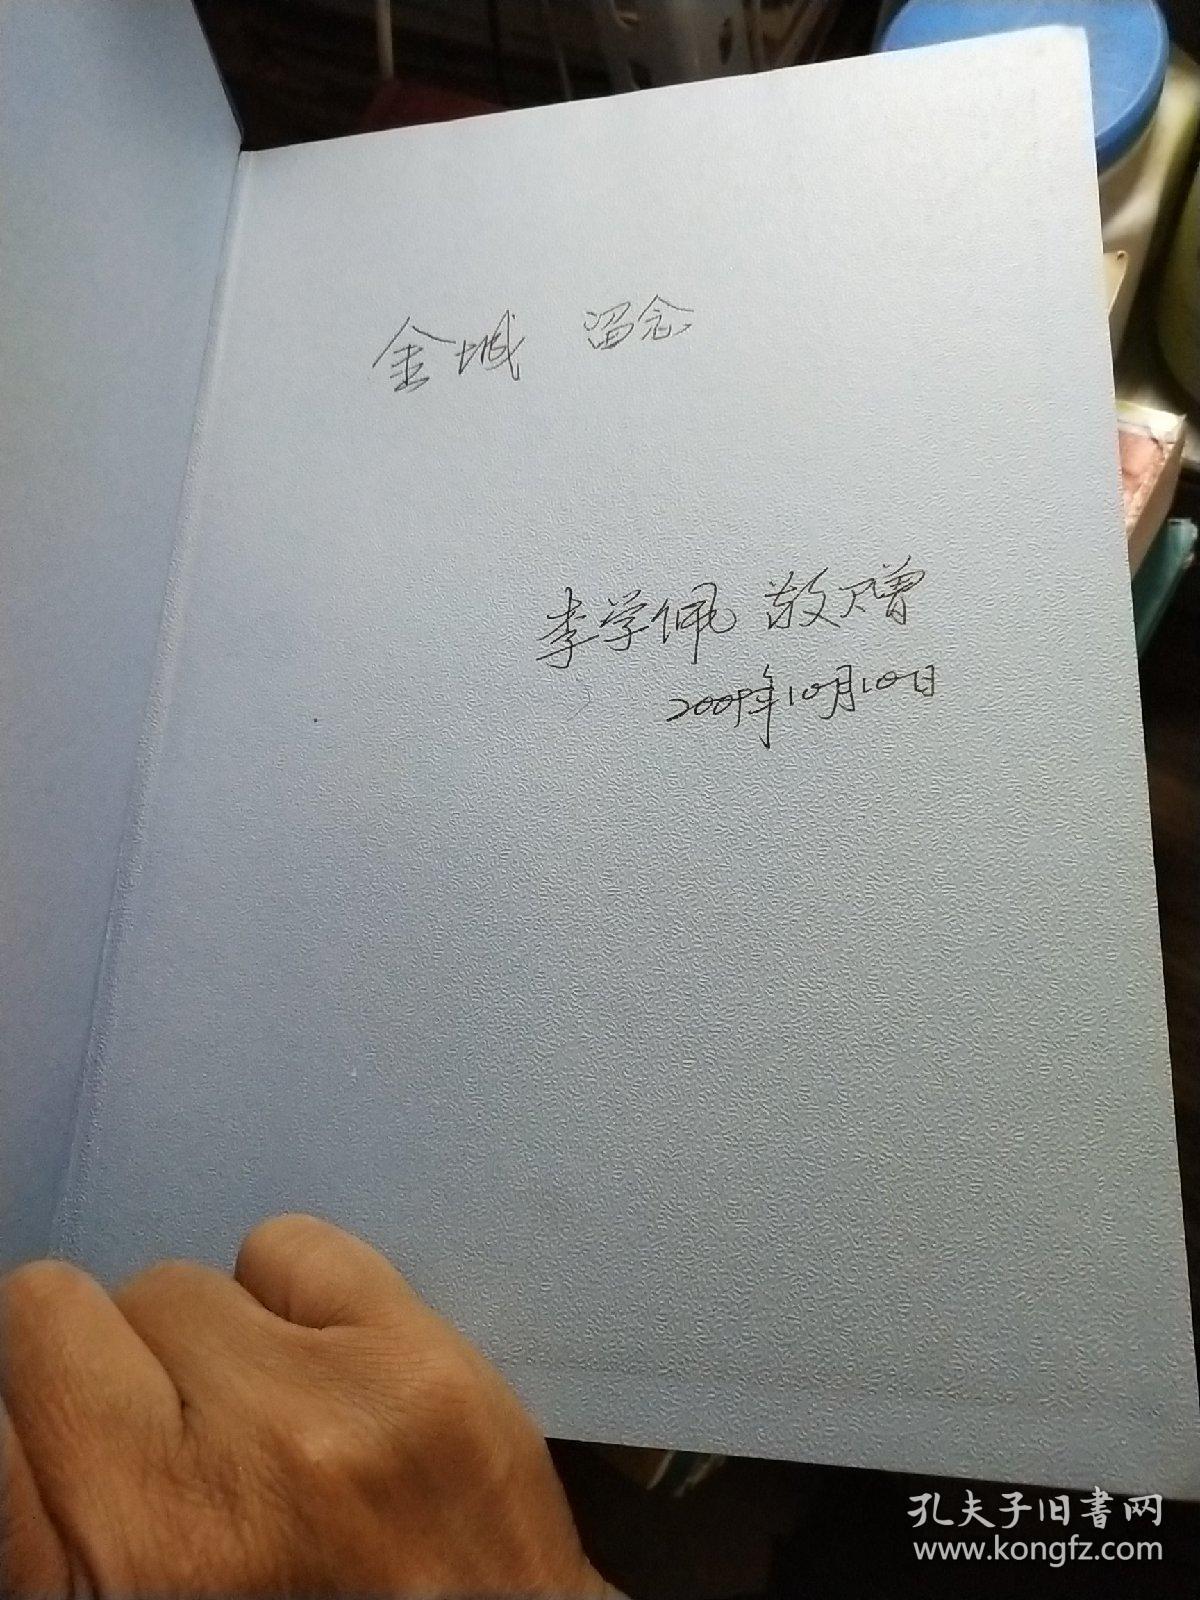 金城 留念
李学佩 敬赠
2009年10月10日
孔夫子旧書网
www.kongfz.com